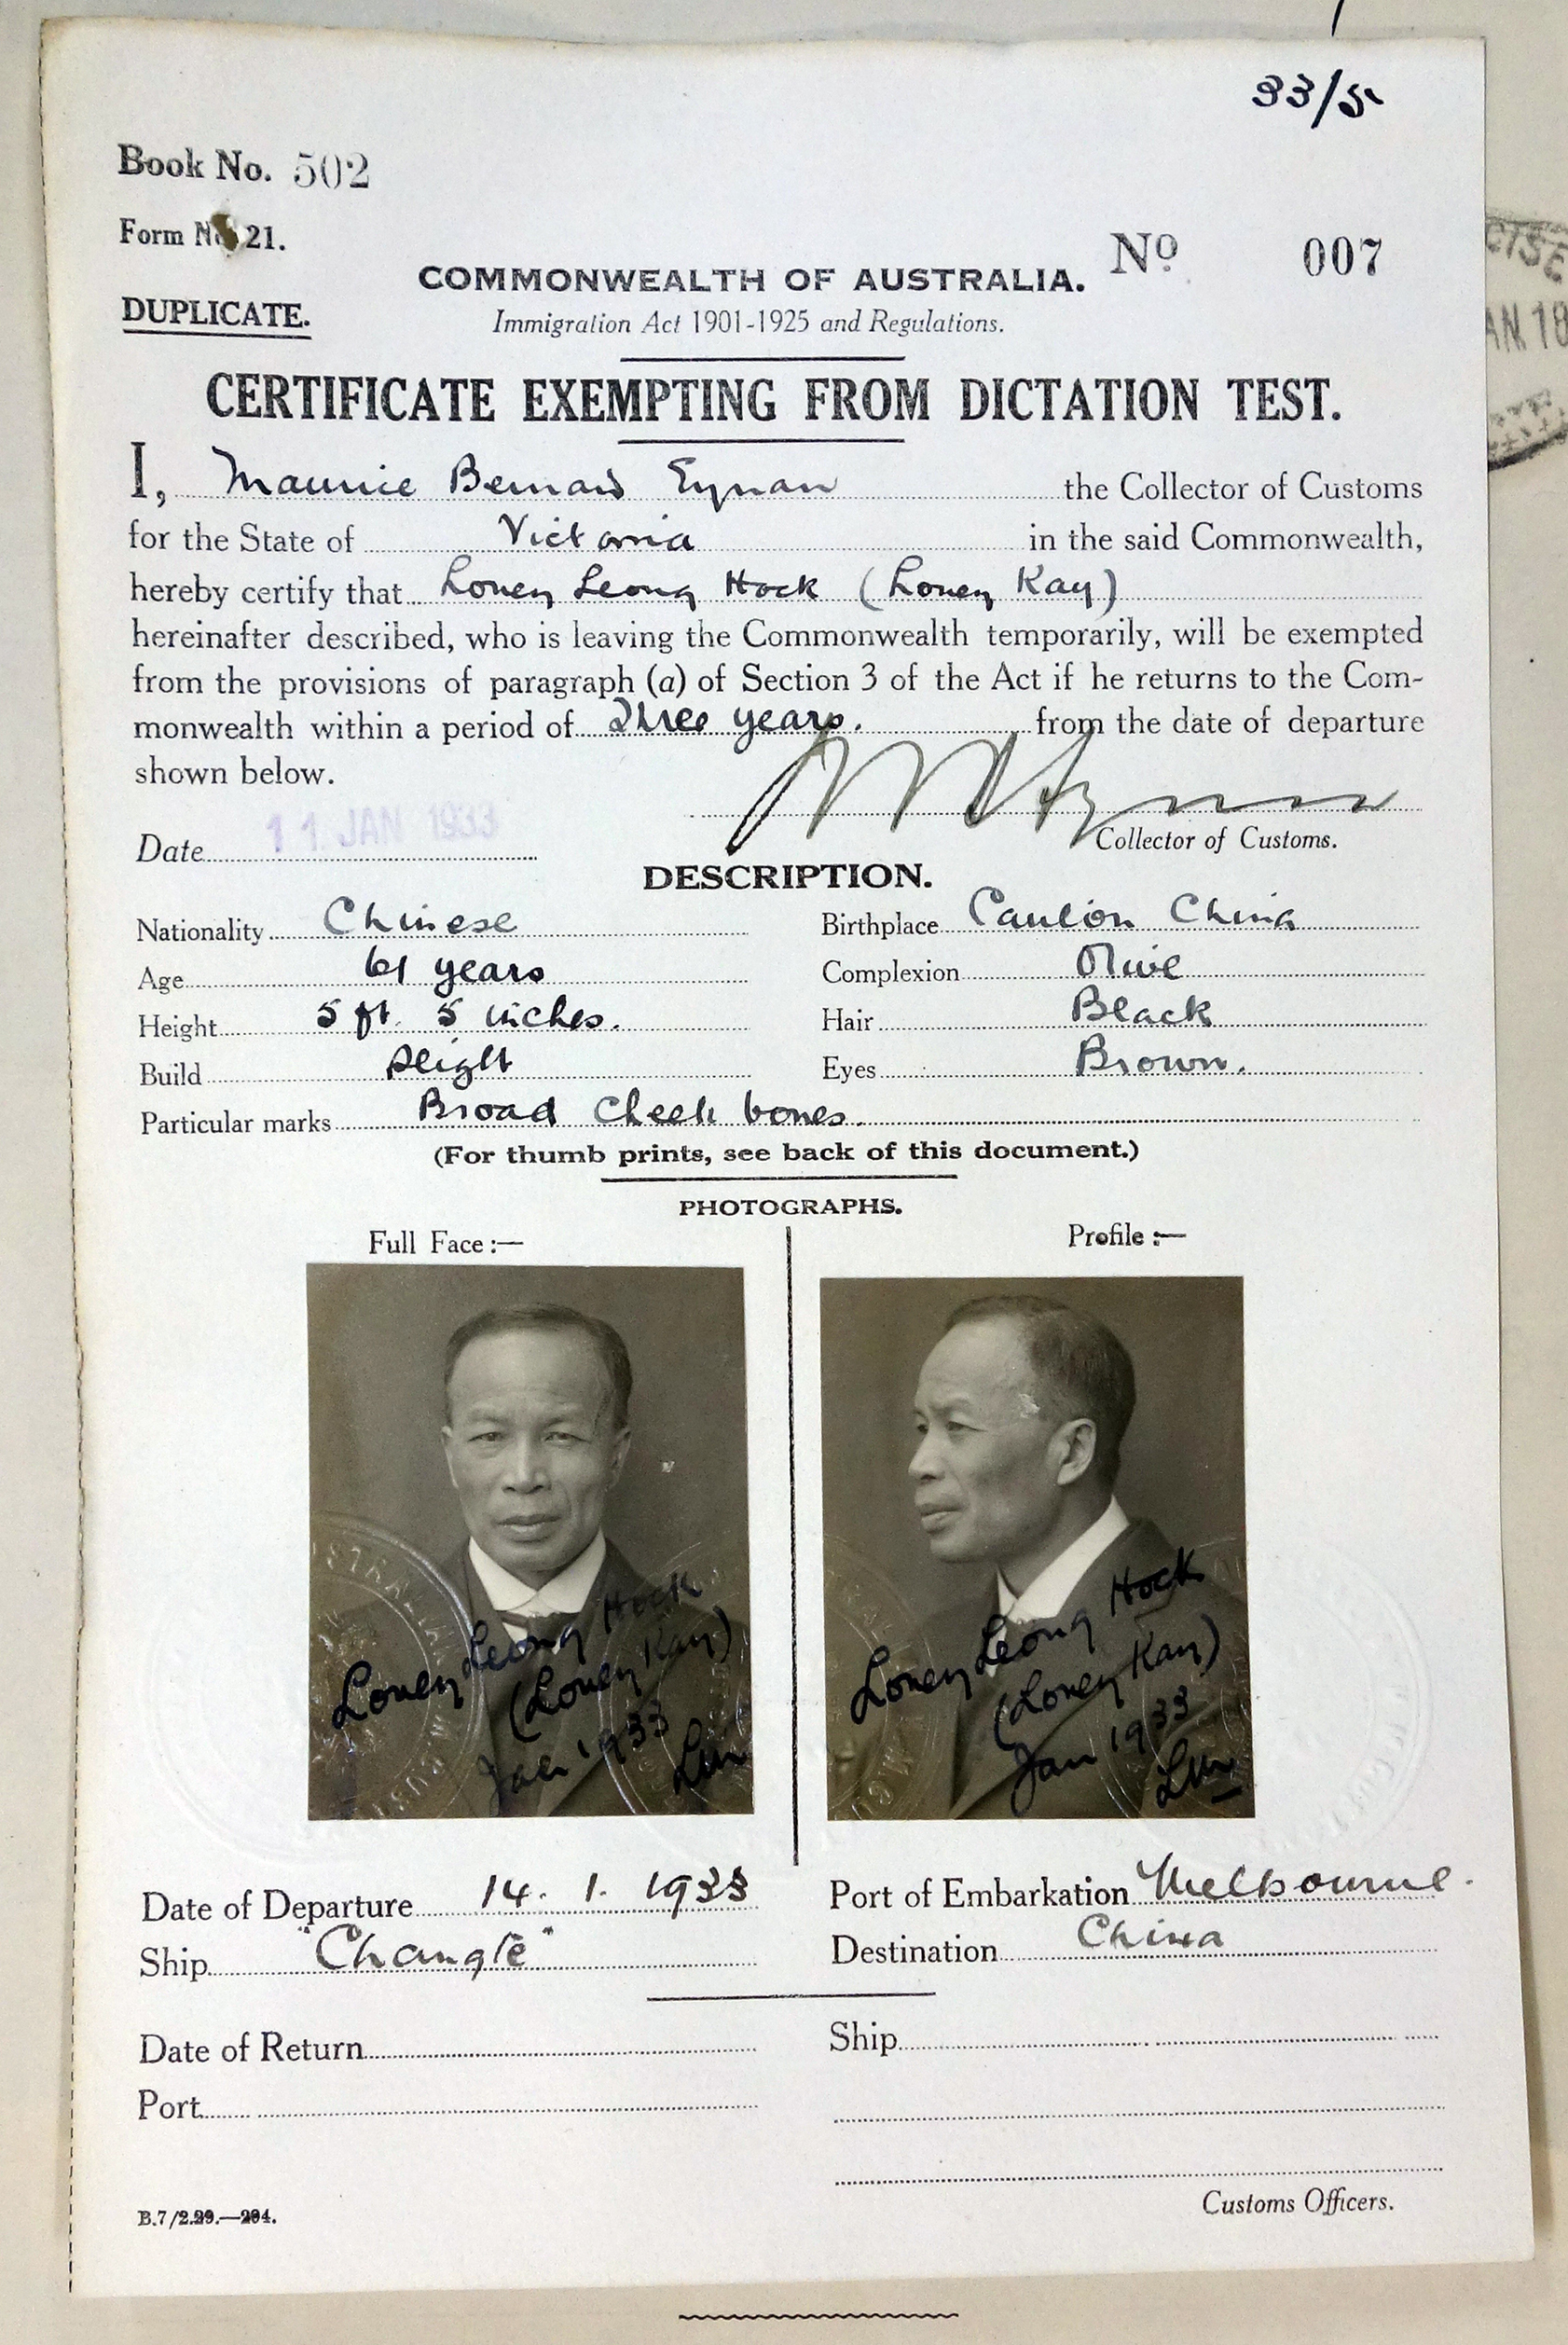 33/5
Book No. 502
Form No 21.
No 007
COMMONWEALTH OF AUSTRALIA.
DUPLICATE.
Immigration Act 1901-1925 and Regulations.
CERTIFICATE EXEMPTING FROM DICTATION TEST.
I, Maurice Bernard Eynan the Collector of Customs
for the State of Victoria in the said Commonwealth,
hereby certify that Louey Leong Hock (Louey Kay)
hereinafter described, who is leaving the Commonwealth temporarily, will be exempted
from the provisions of paragraph (a) of Section 3 of the Act if he returns to the Com-
monwealth within a period of Three years. from the date of departure
shown below.
Date 11 JAN 1933
Collector of Customs.
DESCRIPTION.
Nationality Chinese Birthplace Canton China
Age 61 years Complexion Olive
Height 5 ft. 5 inches. Hair Black
Build Slight Eyes Brown.
Particular marks Broad Cheek bones.
(For thumb prints, see back of this document.)
PHOTOGRAPHS.
Full Face :— Profile :—
Louey Leong Hock
(Louey Kay)
Jan 1933
Louey Leong Hock
(Louey Kay)
Jan 1933
Date of Departure 14. 1. 1933 Port of Embarkation Melbourne.
Ship "Changte" Destination China
Date of Return Ship
Port
Customs Officers.
B.7/2.29.—294.